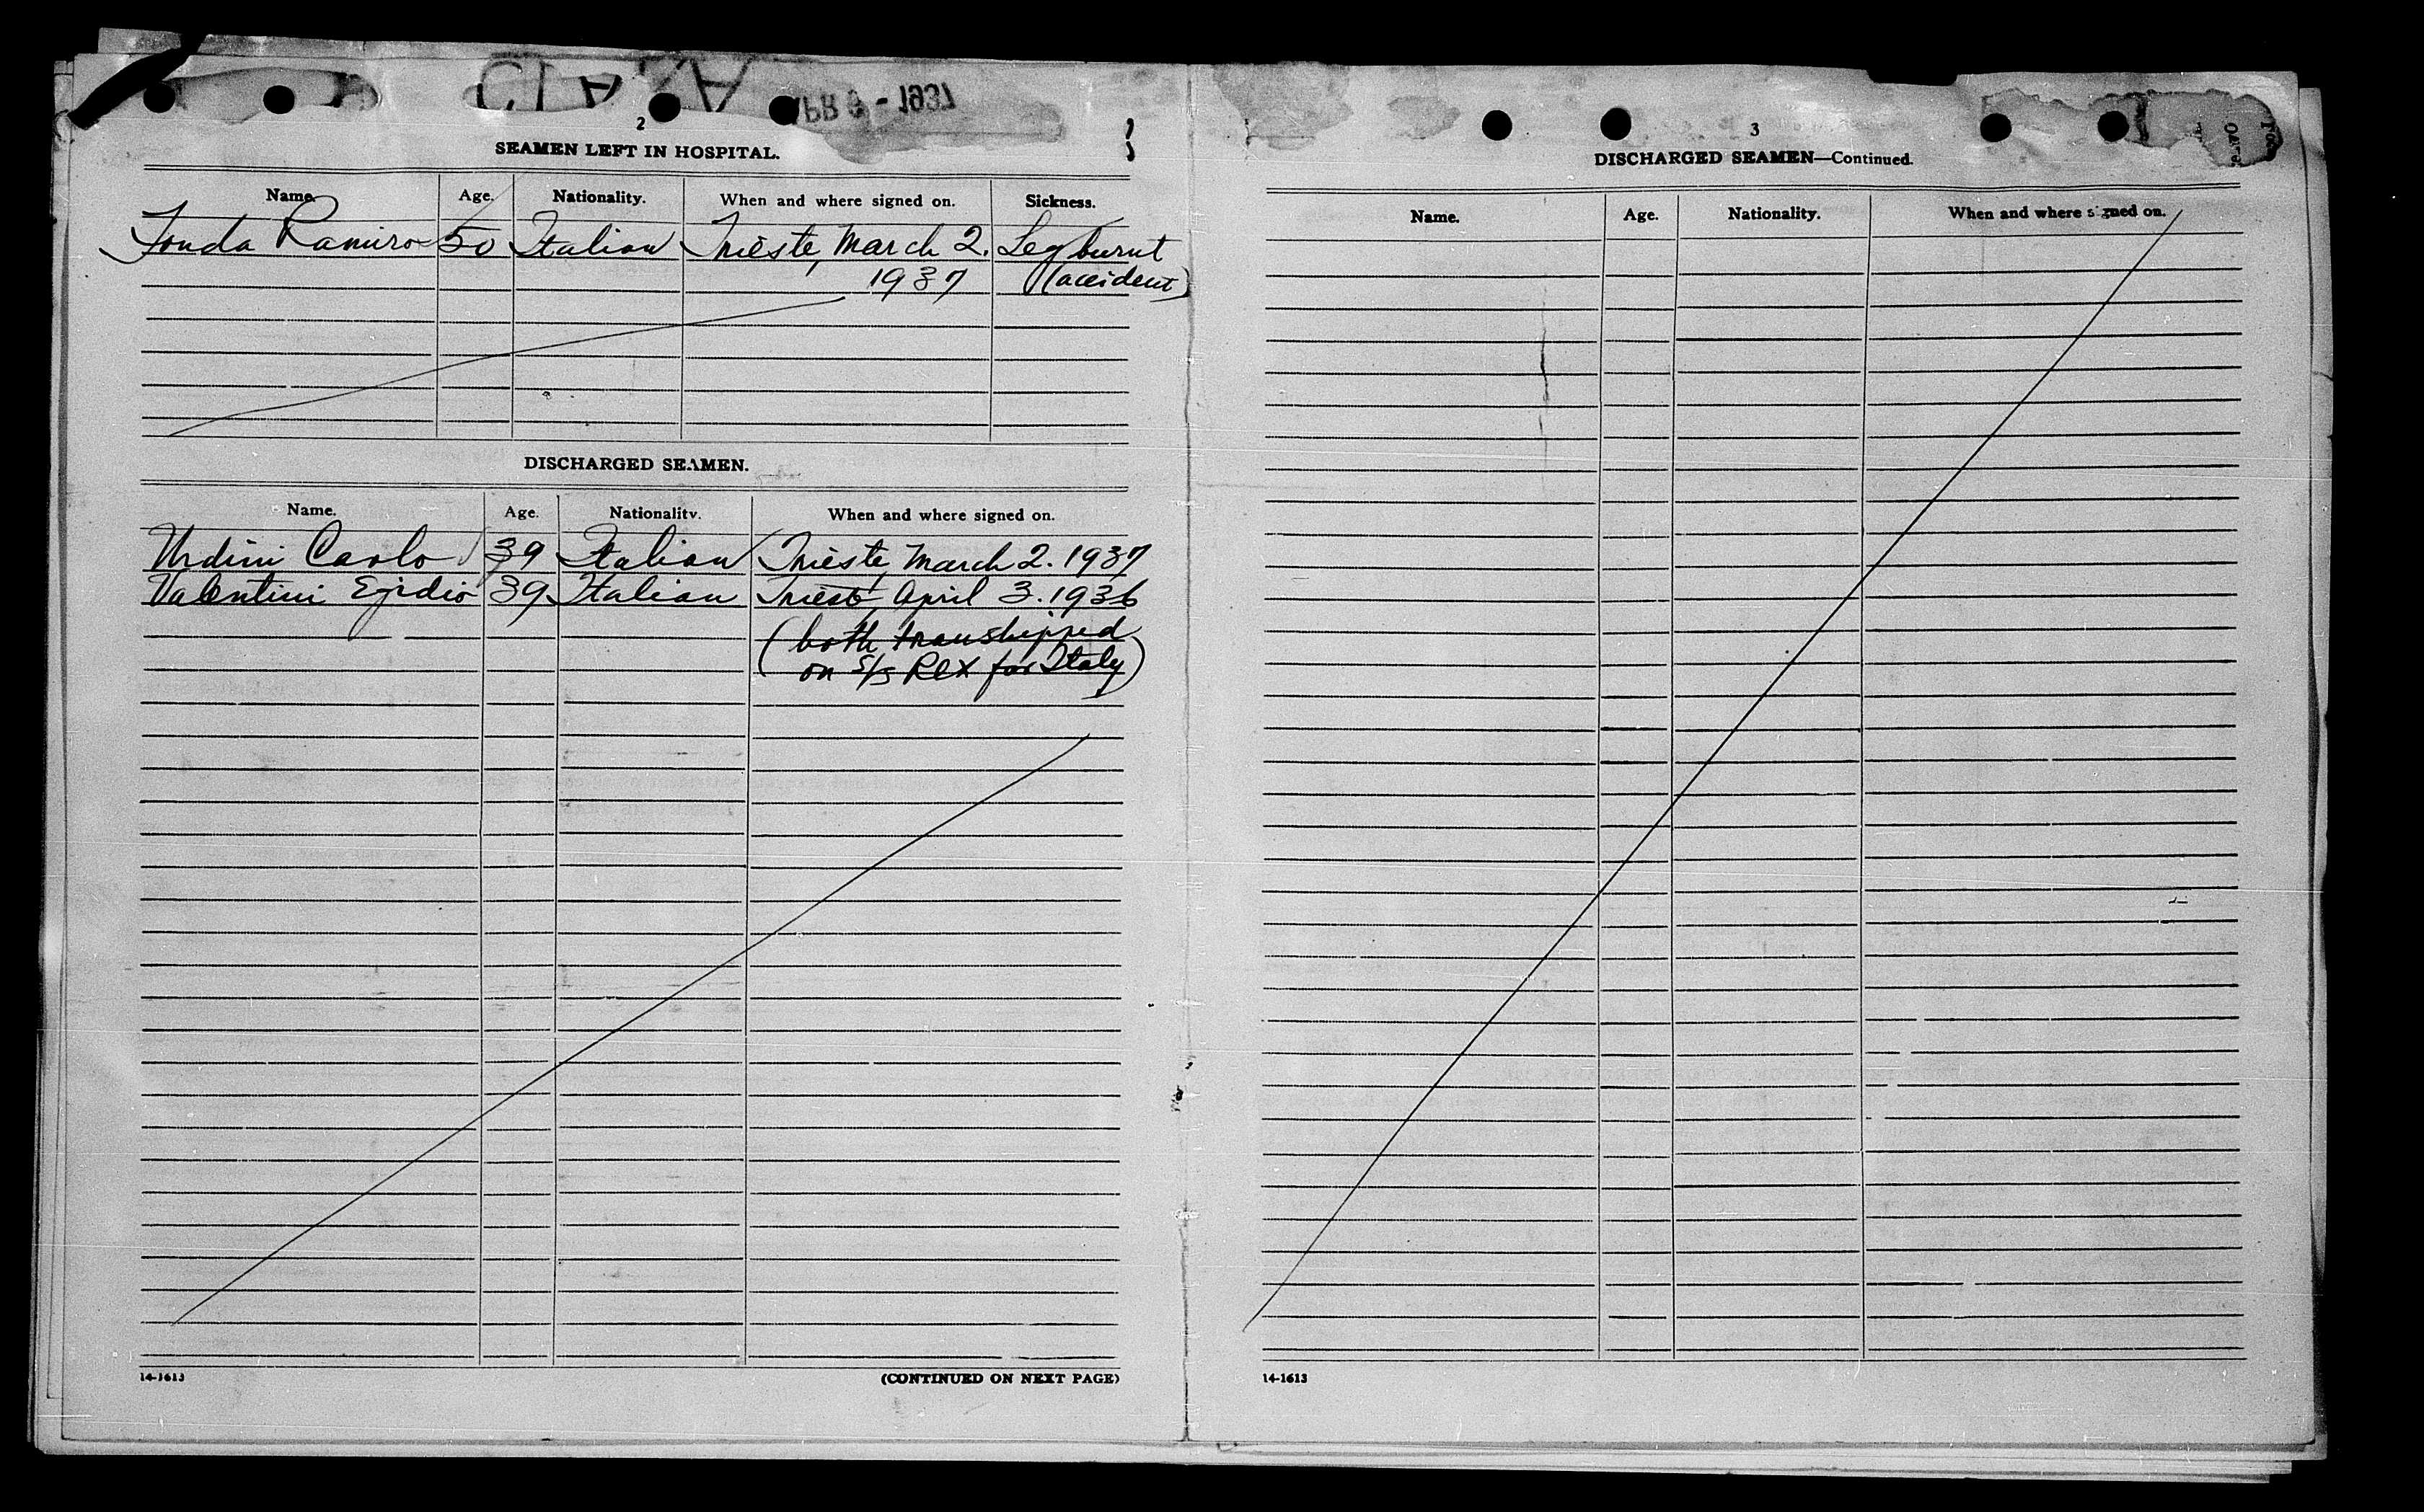 CLARA
APR 3 - 1937
2
SEAMEN LEFT IN HOSPITAL.
Name. Age. Nationality. When and where signed on. Sickness.
Fonda Ramiro 50 Italian Trieste, March 2. Leg burnt
1937 (accident)
DISCHARGED SEAMEN.
Name. Age. Nationality. When and where signed on.
Urdini Carlo 39 Italian Trieste, March 2. 1937
Valentini Egidio 39 Italian Trieste, April 3. 1936
(both transhipped
on S/S Rex for Italy)
14-1613
(CONTINUED ON NEXT PAGE)
3
DISCHARGED SEAMEN—Continued.
Name. Age. Nationality. When and where signed on.
14-1613